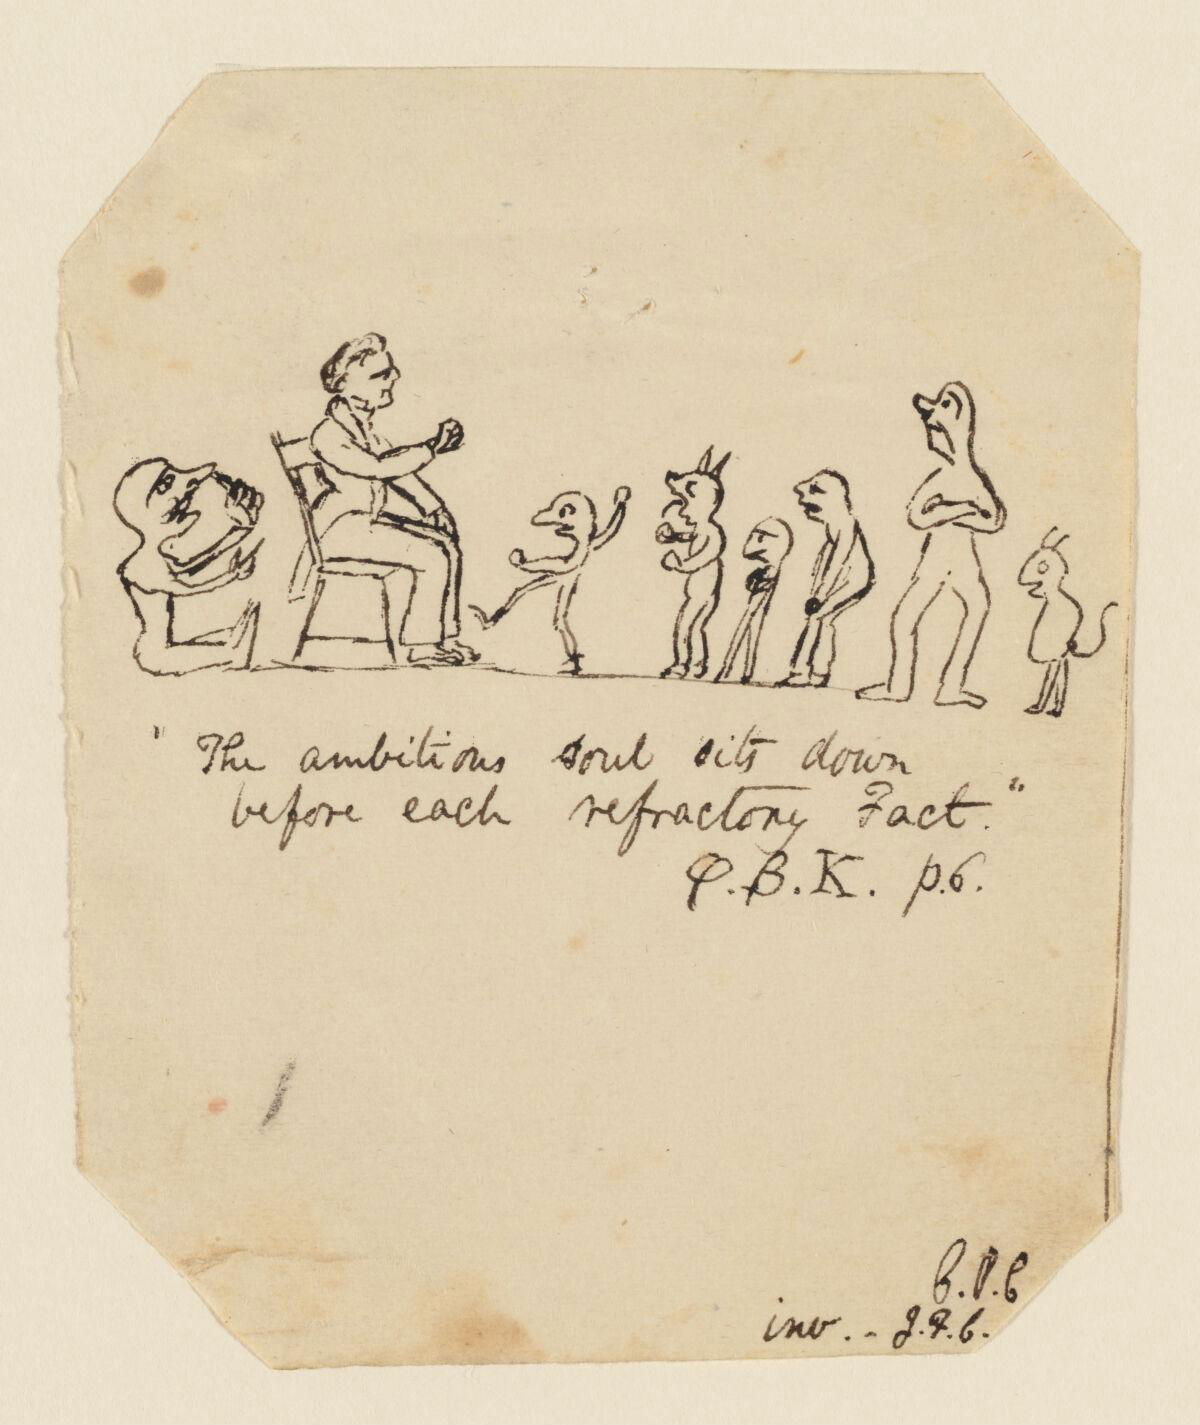 "The ambitious soul sits down
before each refractory Fact."
Φ.B.K. p.6.
C.P.C
inv. - J.F.C.